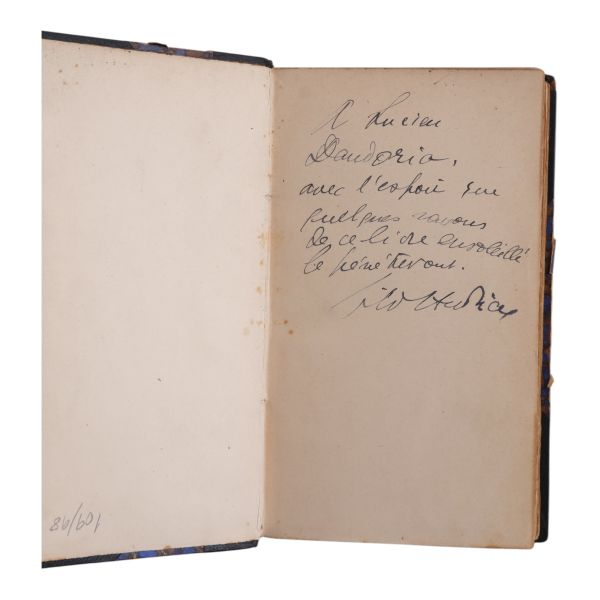 À Lucien
Dandoria,
avec l'espoir que
quelques rayons
de ce livre ensoleillé
le pénètreront.
86/601